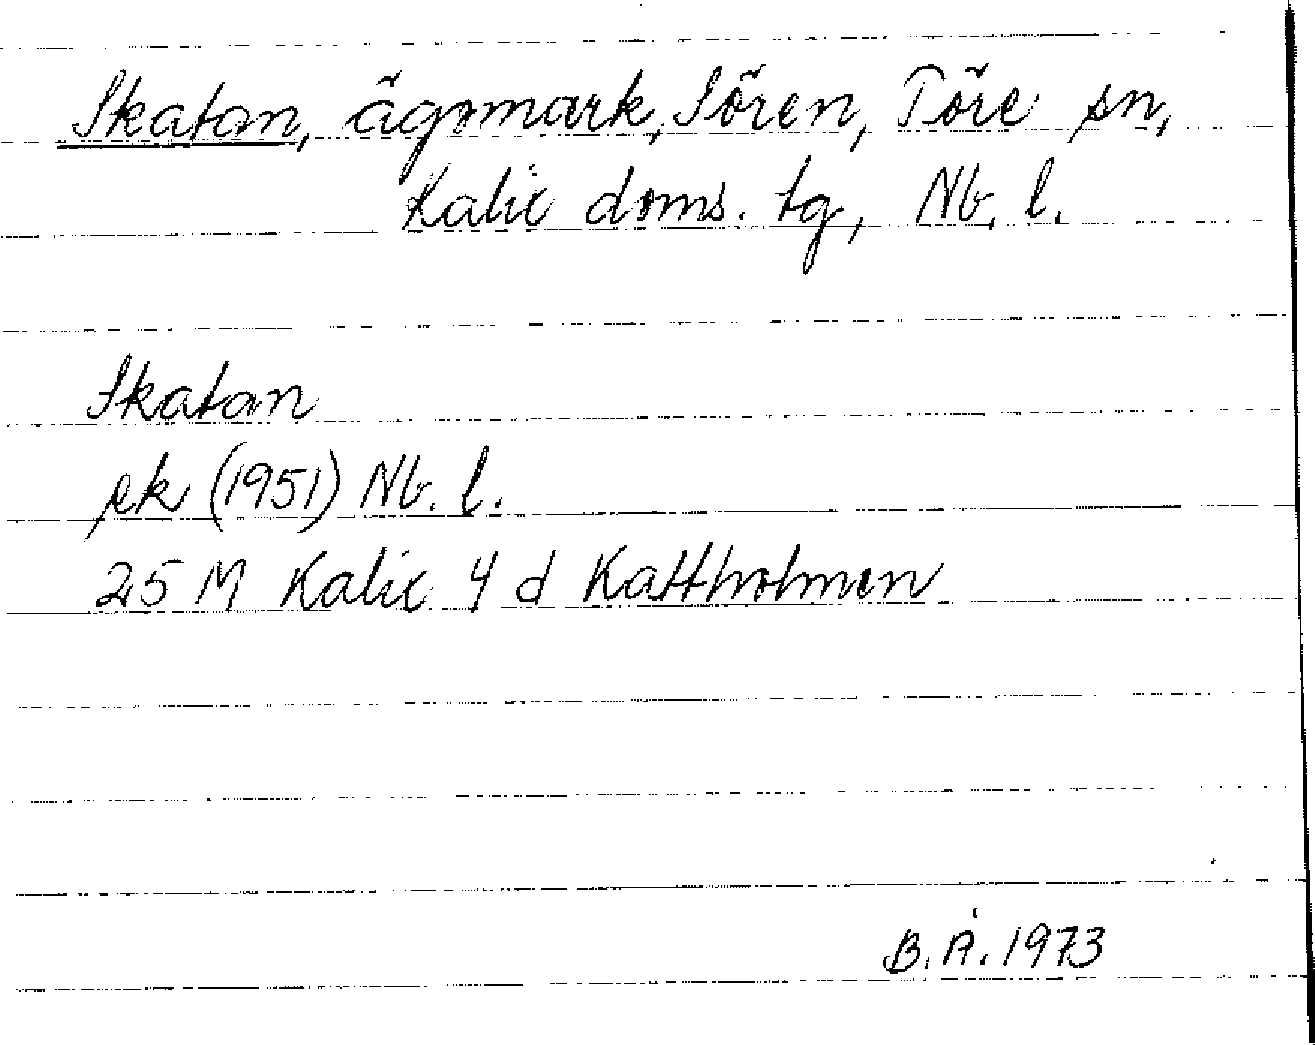 Skatan, ägomark, Sören, Töre sn,
Kalix doms. tg, Nb. l.
Skatan
ek (1951) Nb. l.
25 M Kalix 4 d Kattholmen
B.Å. 1973